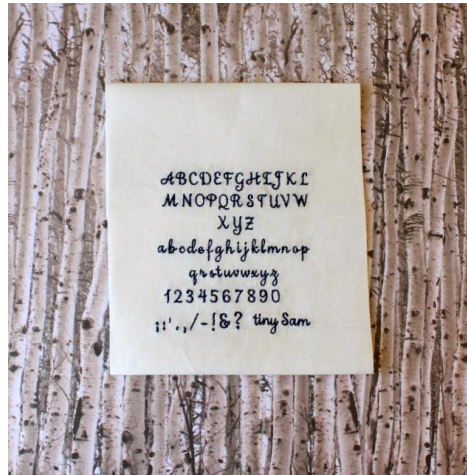 ABCDEFGHIJKL
MNOPQRSTUVW
XYZ
abcdefghijklmnop
qrstuvwxyz
1234567890
;:'.,/-!&? tiny Sam